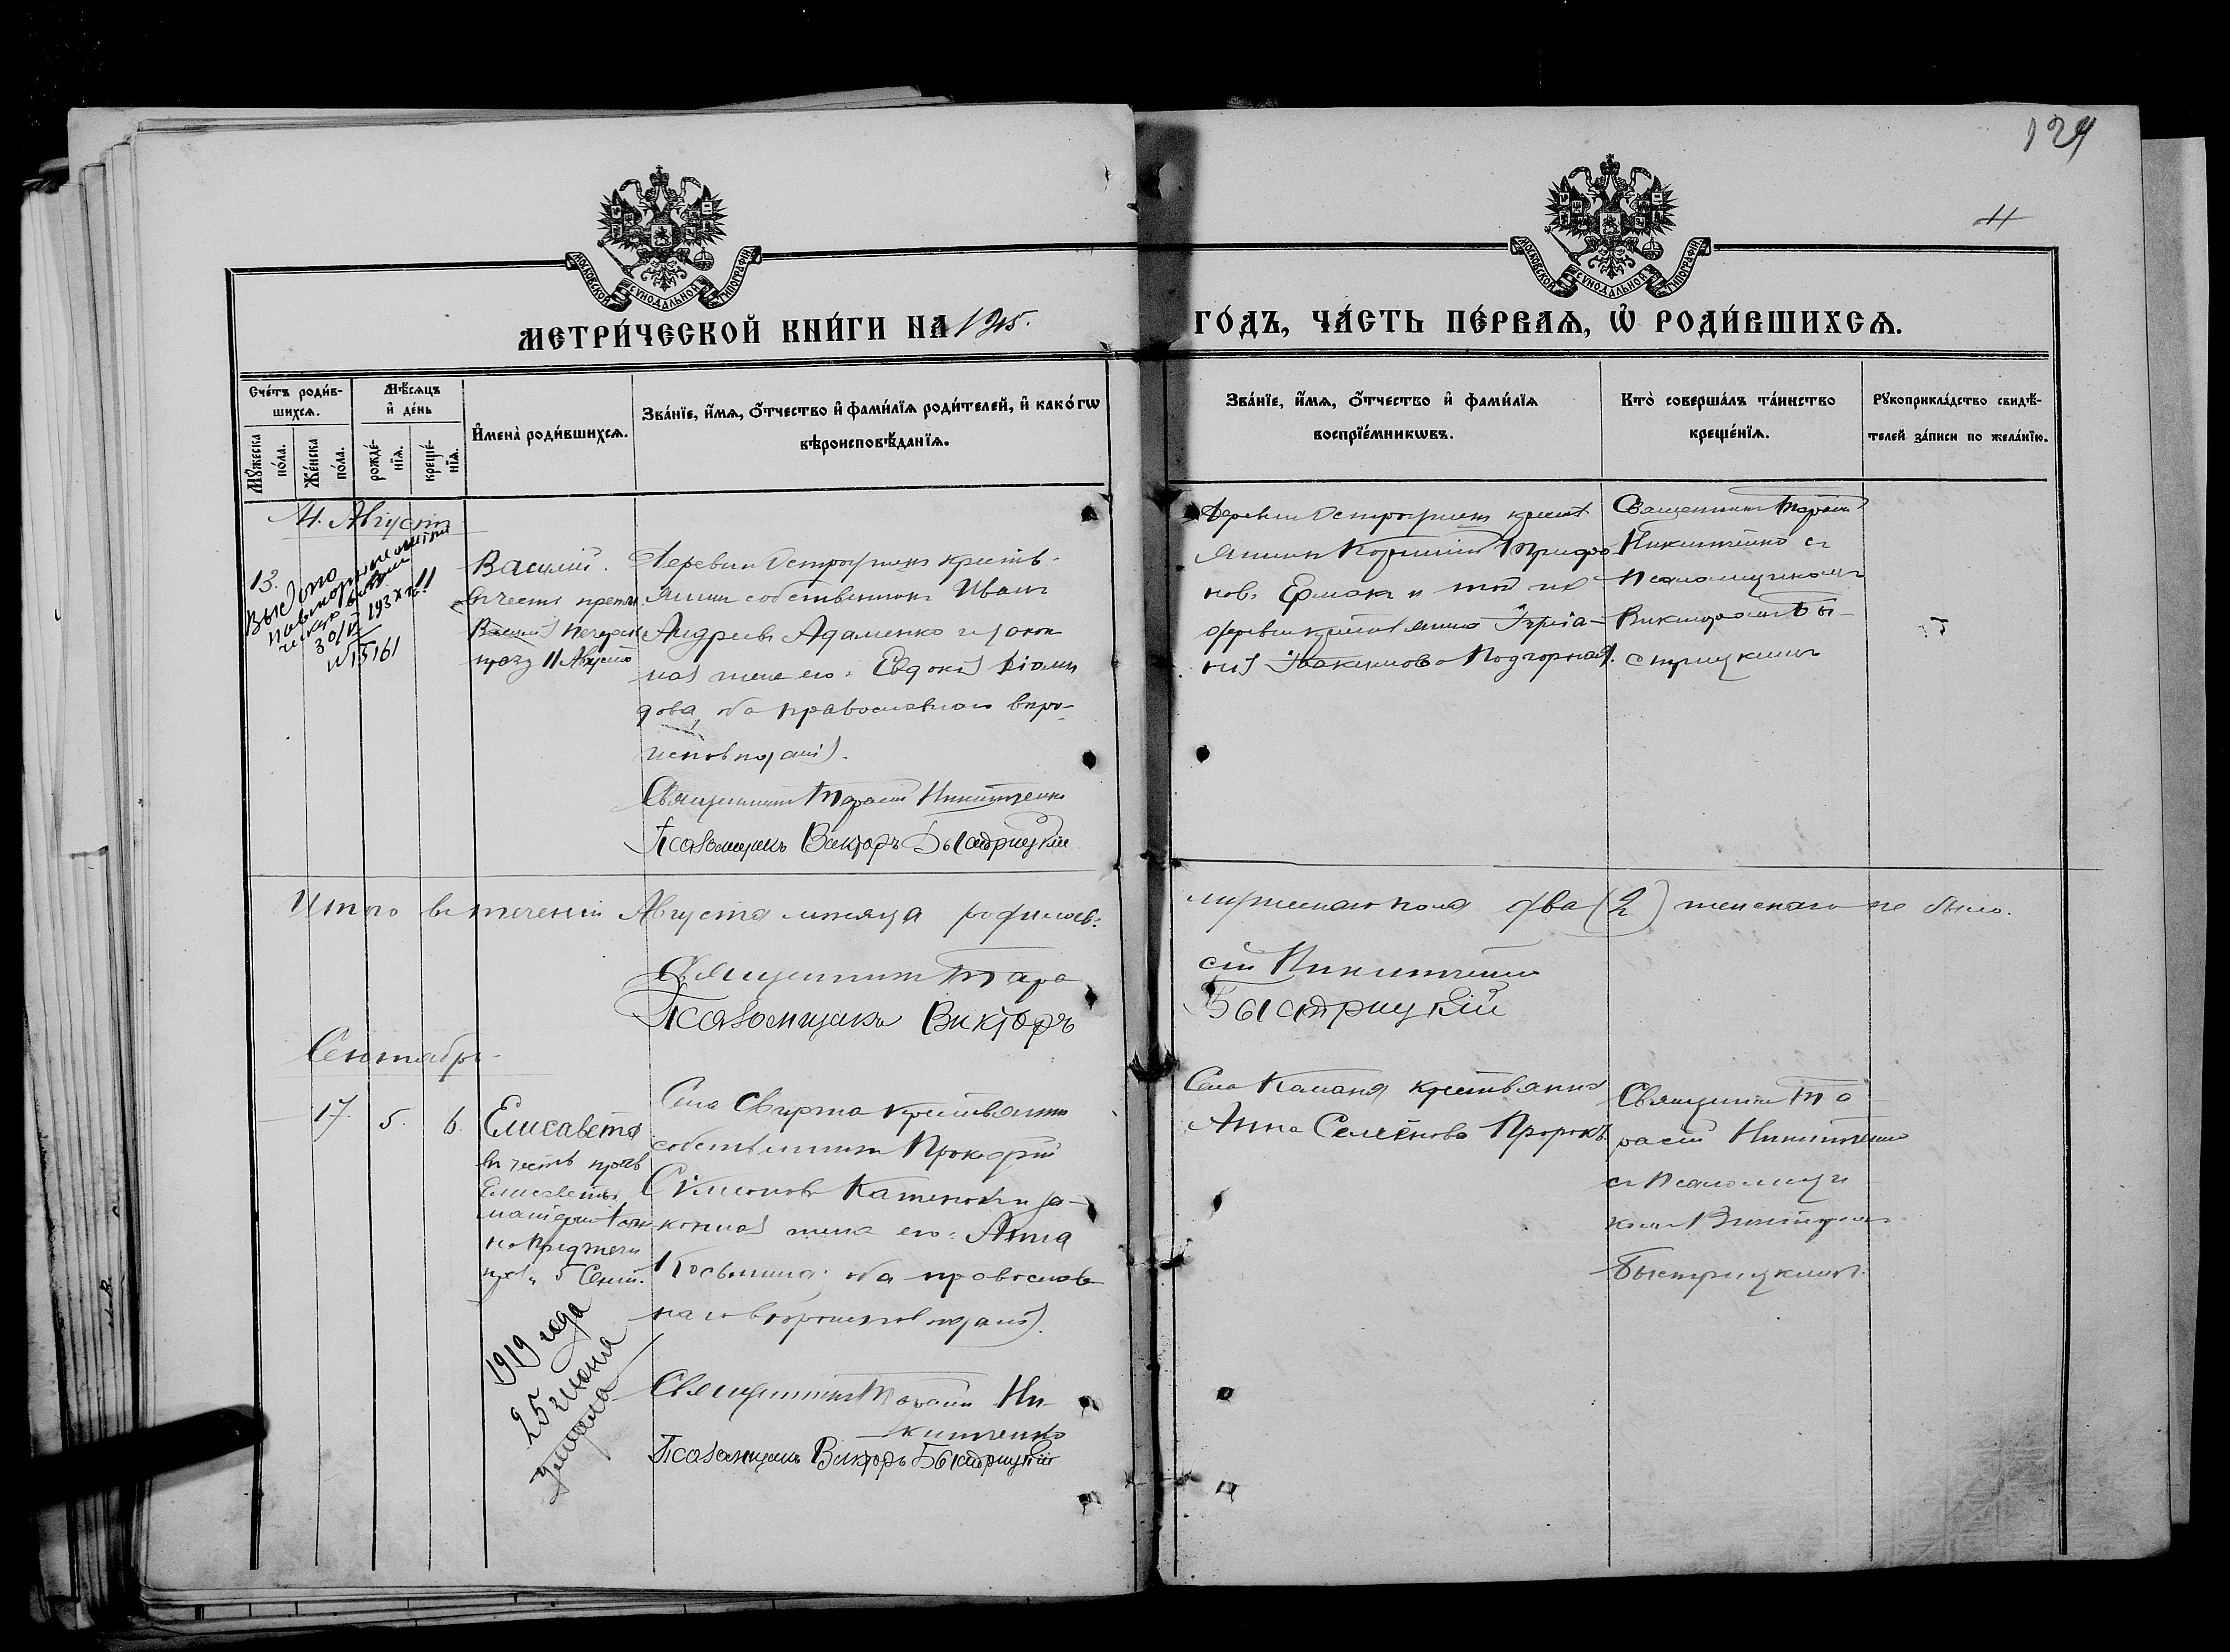 129
11
МОСКОВСКОЙ СУНОДАЛЬНОЙ ТИПОГРАФІИ
МОСКОВСКОЙ СУНОДАЛЬНОЙ ТИПОГРАФІИ
МЕТРИ́ЧЕСКОЙ КНИ́ГИ НА 1915.
ГО́ДЪ, ЧА́СТЬ ПЕ́РВАѦ, Ѡ҆ РОДИ́ВШИХСѦ.
Сче́тъ роди́в-
шихсѧ.
Мꙋ́жеска по́ла.
Же́нска по́ла.
Мѣ́сѧцъ
и҆ де́нь
рожде́-
нїѧ.
креще́-
нїѧ.
И҆мена̀ роди́вшихсѧ.
Зва́нїе, и҆́мѧ, ѻ҆́тчество и҆ фами́лїѧ роди́телей, и҆ како́гѡ
вѣроисповѣ́данїѧ.
Зва́нїе, и҆́мѧ, ѻ҆́тчество и҆ фами́лїѧ
воспрїе́мникѡвъ.
Кто̀ соверша́лъ та́инство
креще́нїѧ.
Рꙋкоприкла́дство свидѣ́-
телей за́писи по жела́нїю.
Августъ
13.
11
Выдано
30/VI 193
№ 15161
Василій.
въ честь препод.
Василія Печерск
празд 11 Августа
Деревни крестья-
нинъ собственникъ Иванъ
Андреевъ Адаменко и закон
ная жена его: Евдокія Діоми
дова, оба православнаго вѣро-
исповѣданія.
Священникъ Тарасій Никитченко
Псаломщикъ Викторъ Быстрицкій
Деревни крестья
янинъ Трифо
новъ Ермакъ и той же
деревни крестьянка
нія Іоакимова Подгорная.
Священникъ Тарасій
Никитченко съ
псаломщикомъ
Викторомъ Бы-
стрицкимъ
Итого въ теченіи Августа мѣсяца родилось:
мужескаго пола два (2) женскаго не было.
Священникъ Тара
сій Никитченко
Псаломщикъ Викторъ
Быстрицкій
Сентябрь
17. 5. 6.
Елисавета
въ честь прав
Елисаветы
матери Іоан
на Предтечи
праз. 5 Сент.
1919 года
25 июня
умерла
Села Свирта крестьянинъ
собственникъ Прокофій
Симеоновъ и за-
конная жена его: Анна
Косьмина; оба православ
наго вѣроисповѣданія.
Священникъ Тарасій Ни-
китченко
Псаломщикъ Викторъ Быстрицкій
Села крестьянка
Анна Семенова Пророкъ.
Священникъ Та
расій Никитченко
съ Псаломщи
комъ Викторомъ
Быстрицкимъ.